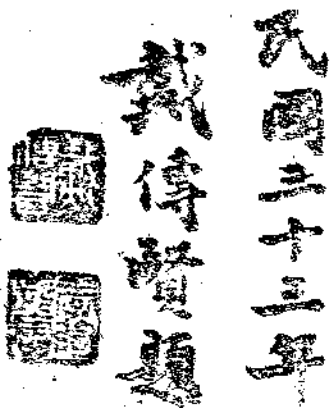 民國三十三年
戴傳賢題